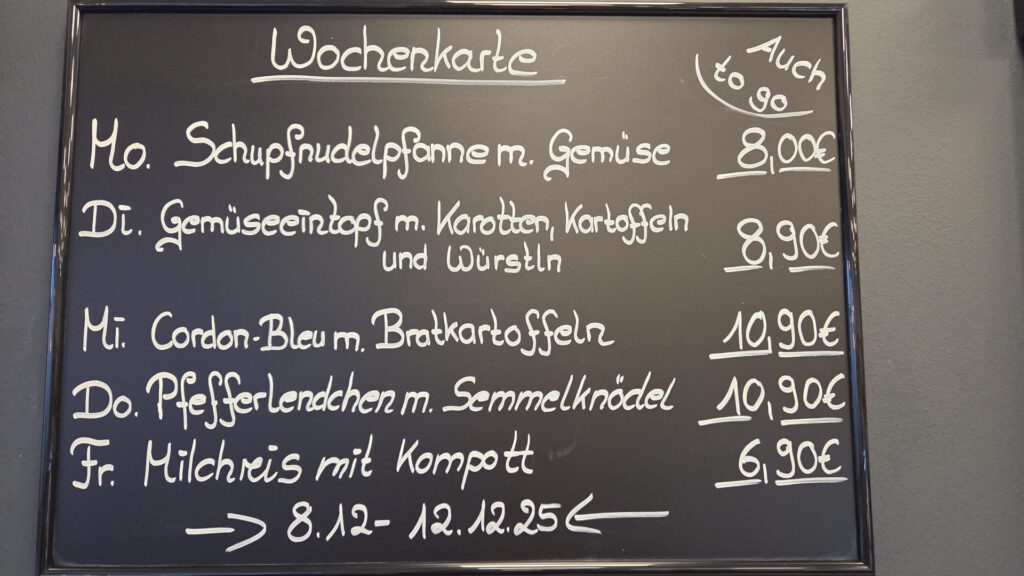 Wochenkarte
Auch
to go
Mo. Schupfnudelpfanne m. Gemüse 8,00€
Di. Gemüseeintopf m. Karotten, Kartoffeln
und Würstln 8,90€
Mi. Cordon-Bleu m. Bratkartoffeln 10,90€
Do. Pfefferlendchen m. Semmelknödel 10,90€
Fr. Milchreis mit Kompott 6,90€
→ 8.12 - 12.12.25 ←